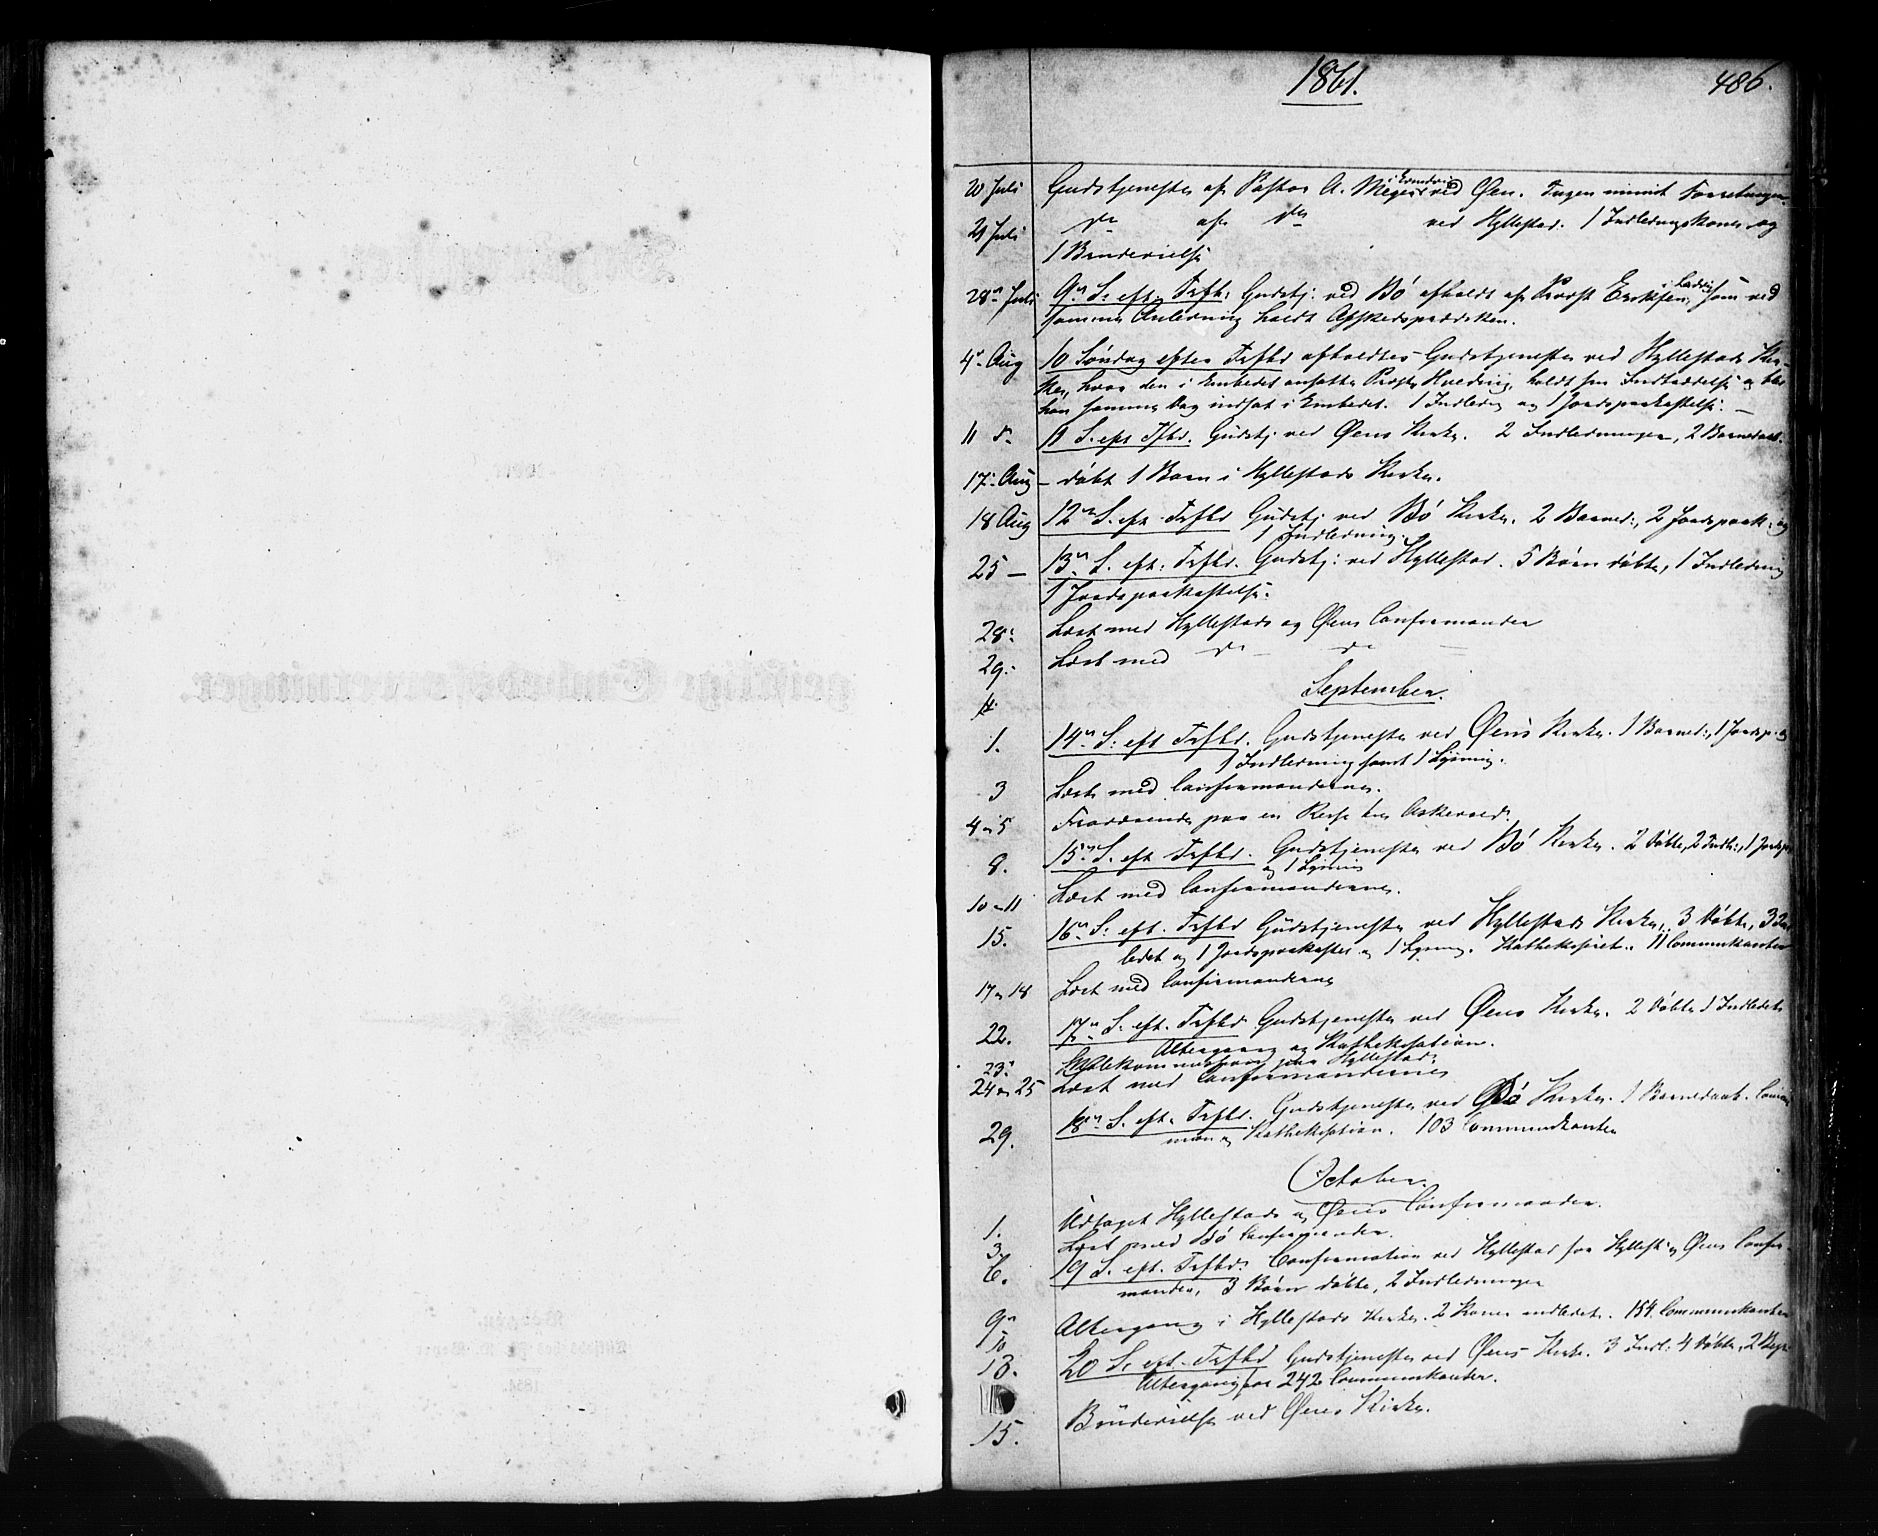 1861.
486.
20 Juli Gudstjeneste af Pastor A. Meyer ved Øen. Ingen minist Forretninger
21 Juli do af do ved Hyllestad. 1 Indledningskone og
1 Brudevielse
28de Juli 9de S. eft. Trfh: Gudstj: ved Bø afholdt af Provst Eriksen, som ved
samme Anledning holdt Afskedsprædiken.
4de Aug 10 Søndag efter Trfhd afholdtes Gudstjeneste ved Hyllestads Kir-
ke, hvor den i Embedet ansatte Præst Hveding, holdt sin Indtrædelse og blev
han samme Dag indsat i Embedet. 1 Indledn og 1 Jordspaakastelse. —
11 d. 11 S. eft Tfhd. Gudstj ved Øens Kirke. 2 Indledninger, 2 Barnedaab.
17de Aug — døbt 1 Barn i Hyllestads Kirke.
18 Aug 12te S. eft Trfhd Gudstj ved Bø Kirke. 2 Barned:, 2 Jordspaak: og
1 Indledning.
25 — 13de S. eft. Trfhd. Gudstj: ved Hyllestad. 5 Børn døbte, 1 Indledning
1 Jordspaakastelse.
28: Læst med Hyllestads og Øens Confirmander
29: Læst med do do —
September.
1. 14de S: eft Trfhd. Gudstjeneste ved Øens Kirke. 1 Barned:, 1 Jordsp. og
1 Indledning samt 1 Lysning.
3 Læst med Confirmanderne.
4 og 5 Fraværende paa en Reise til Askevold.
8. 15de S. eft Trfhd. Gudstjeneste ved Bø Kirke. 2 Døbte, 2 Indl:, 1 Jordsp
og 1 Lysning
10 og 11 Læst med Confirmanderne.
15. 16de S: eft. Trfhd Gudstjeneste ved Hyllestads Kirke, 3 Døbte, 3 Ind
ledet og 1 Jordspaakastes og 1 Lysning. Kathekiseret. 11 Communikanter
17 og 18 Læst med Confirmanderne
22. 17de S. eft. Trfhd. Gudstjeneste ved Øens Kirke. 2 Døbte 1 Indledet
Altergang og Kathekisation.
23: Skolekommission paa Hyllestad:
24 og 25 Læst med Confirmanderne
29. 18de S. eft. Trfhd. Gudstjeneste ved Bø Kirke. 1 Barnedaab. Com
mun og Kathekisation. 103 Communikanter
October.
1. Udtaget Hyllestads og Øens Confirmander.
3. Læst med Bø Confirmander.
6. 19 S. eft. Trfhd: Confirmation ved Hyllestad for Hyllest: og Øens Confir-
mander, 3 Børn døbte, 2 Indledninger
9de Altergang i Hyllestads Kirke. 2 Koner indledet. 154 Communikanter
13. 20 S. eft. Trfhd Gudstjeneste ved Øens Kirke. 3 Indl: 4 Døbte, 2
Altergang for 242 Communikanter.
15. Brudevielse ved Øens Kirke.